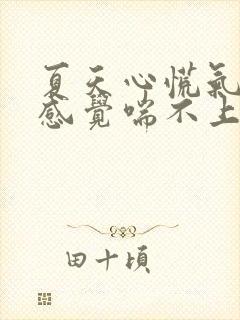 夏天心慌氣
感覺喘不上
田十頃